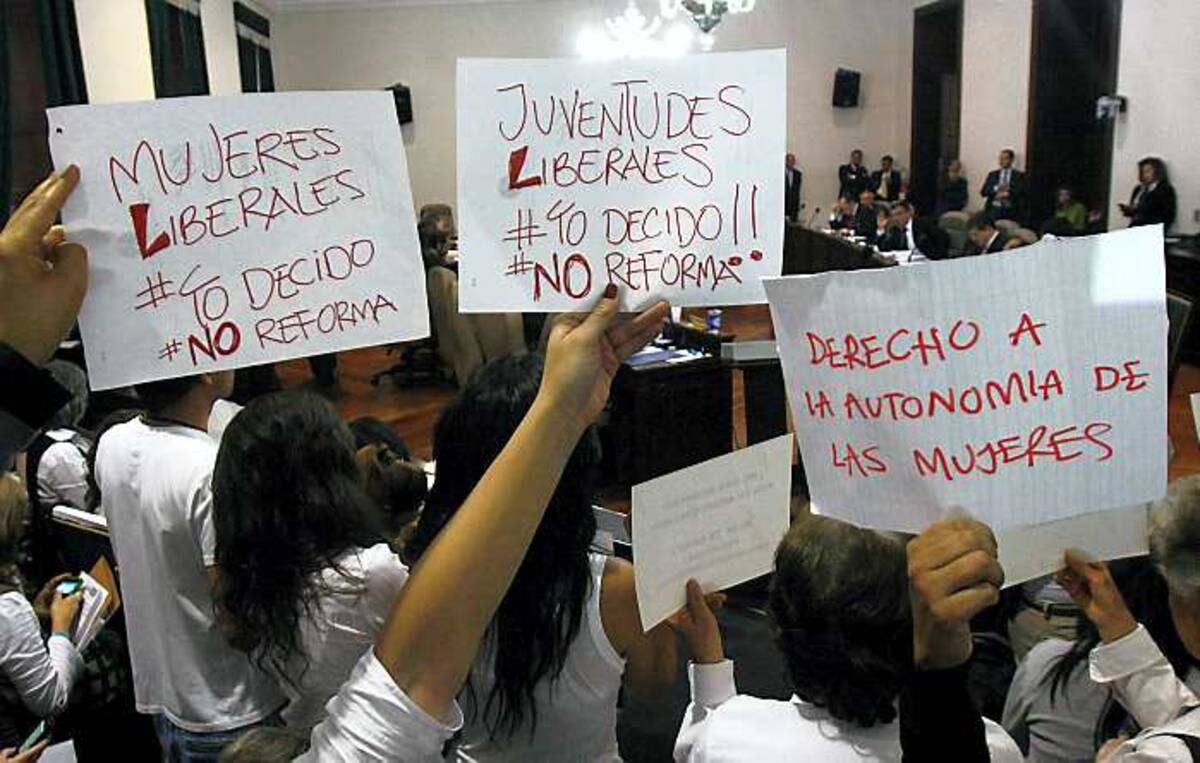 MUJERES
LIBERALES
#YO DECIDO
#NO REFORMA
JUVENTUDES
LIBERALES
#YO DECIDO!!
#NO REFORMA..
DERECHO A
LA AUTONOMIA DE
LAS MUJERES